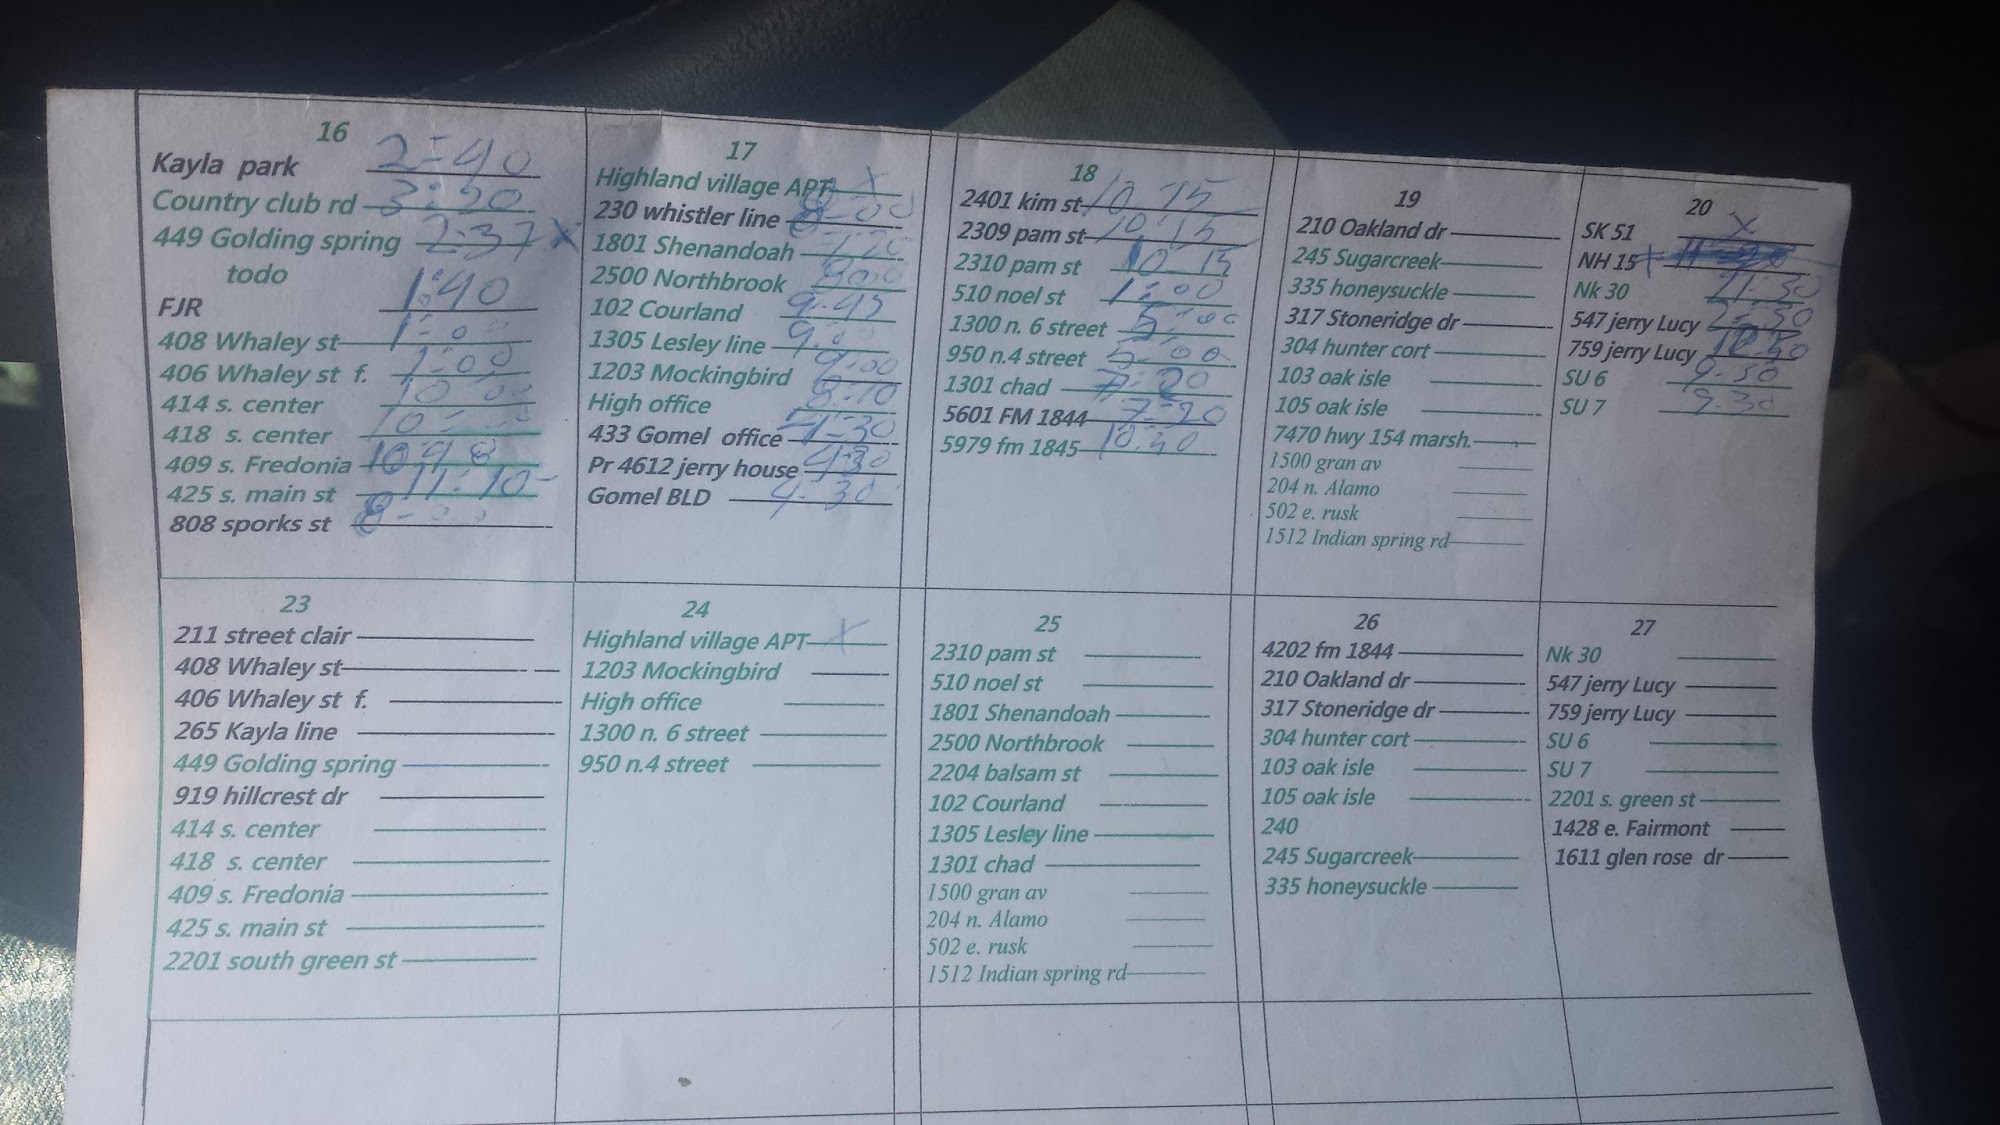 16
Kayla park 2-40
Country club rd 3:20
449 Golding spring 2:37 X
todo
FJR 1:40
408 Whaley st 1-00
406 Whaley st f. 1-00
414 s. center 10 00
418 s. center 10-00
409 s. Fredonia 10 48
425 s. main st 11:10-
808 sporks st 8-00
17
Highland village APT X
230 whistler line 8-00
1801 Shenandoah
2500 Northbrook
102 Courland 9:45
1305 Lesley line 9:00
1203 Mockingbird 9:00
High office 8:10
433 Gomel office 4-30
Pr 4612 jerry house 4:30
Gomel BLD 4-30
18
2401 kim st 10 15
2309 pam st 10 15
2310 pam st 10 15
510 noel st 1:00
1300 n. 6 street 5:00
950 n.4 street 5:00
1301 chad 7:20
5601 FM 1844 7:20
5979 fm 1845 10:40
19
210 Oakland dr
245 Sugarcreek
335 honeysuckle
317 Stoneridge dr
304 hunter cort
103 oak isle
105 oak isle
7470 hwy 154 marsh.
1500 gran av
204 n. Alamo
502 e. rusk
1512 Indian spring rd
20
SK 51 X
NH 15
Nk 30 11:30
547 jerry Lucy 2:50
759 jerry Lucy 10:50
SU 6 9:30
SU 7 9:30
23
211 street clair
408 Whaley st
406 Whaley st f.
265 Kayla line
449 Golding spring
919 hillcrest dr
414 s. center
418 s. center
409 s. Fredonia
425 s. main st
2201 south green st
24
Highland village APT X
1203 Mockingbird
High office
1300 n. 6 street
950 n.4 street
25
2310 pam st
510 noel st
1801 Shenandoah
2500 Northbrook
2204 balsam st
102 Courland
1305 Lesley line
1301 chad
1500 gran av
204 n. Alamo
502 e. rusk
1512 Indian spring rd
26
4202 fm 1844
210 Oakland dr
317 Stoneridge dr
304 hunter cort
103 oak isle
105 oak isle
240
245 Sugarcreek
335 honeysuckle
27
Nk 30
547 jerry Lucy
759 jerry Lucy
SU 6
SU 7
2201 s. green st
1428 e. Fairmont
1611 glen rose dr